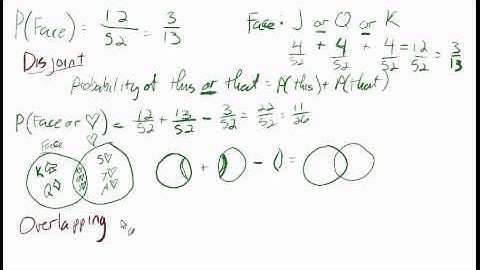 P(Face) = 12/52 = 3/13
Face: J or Q or K
4/52 + 4/52 + 4/52 = 12/52 = 3/13
Disjoint
Probability of this or that = P(this) + P(that)
P(Face or ♡) = 12/52 + 13/52 - 3/52 = 22/52 = 11/26
Face ♡
K♤ 5♡
Q♢ 7♡
A♡
+ - =
Overlapping